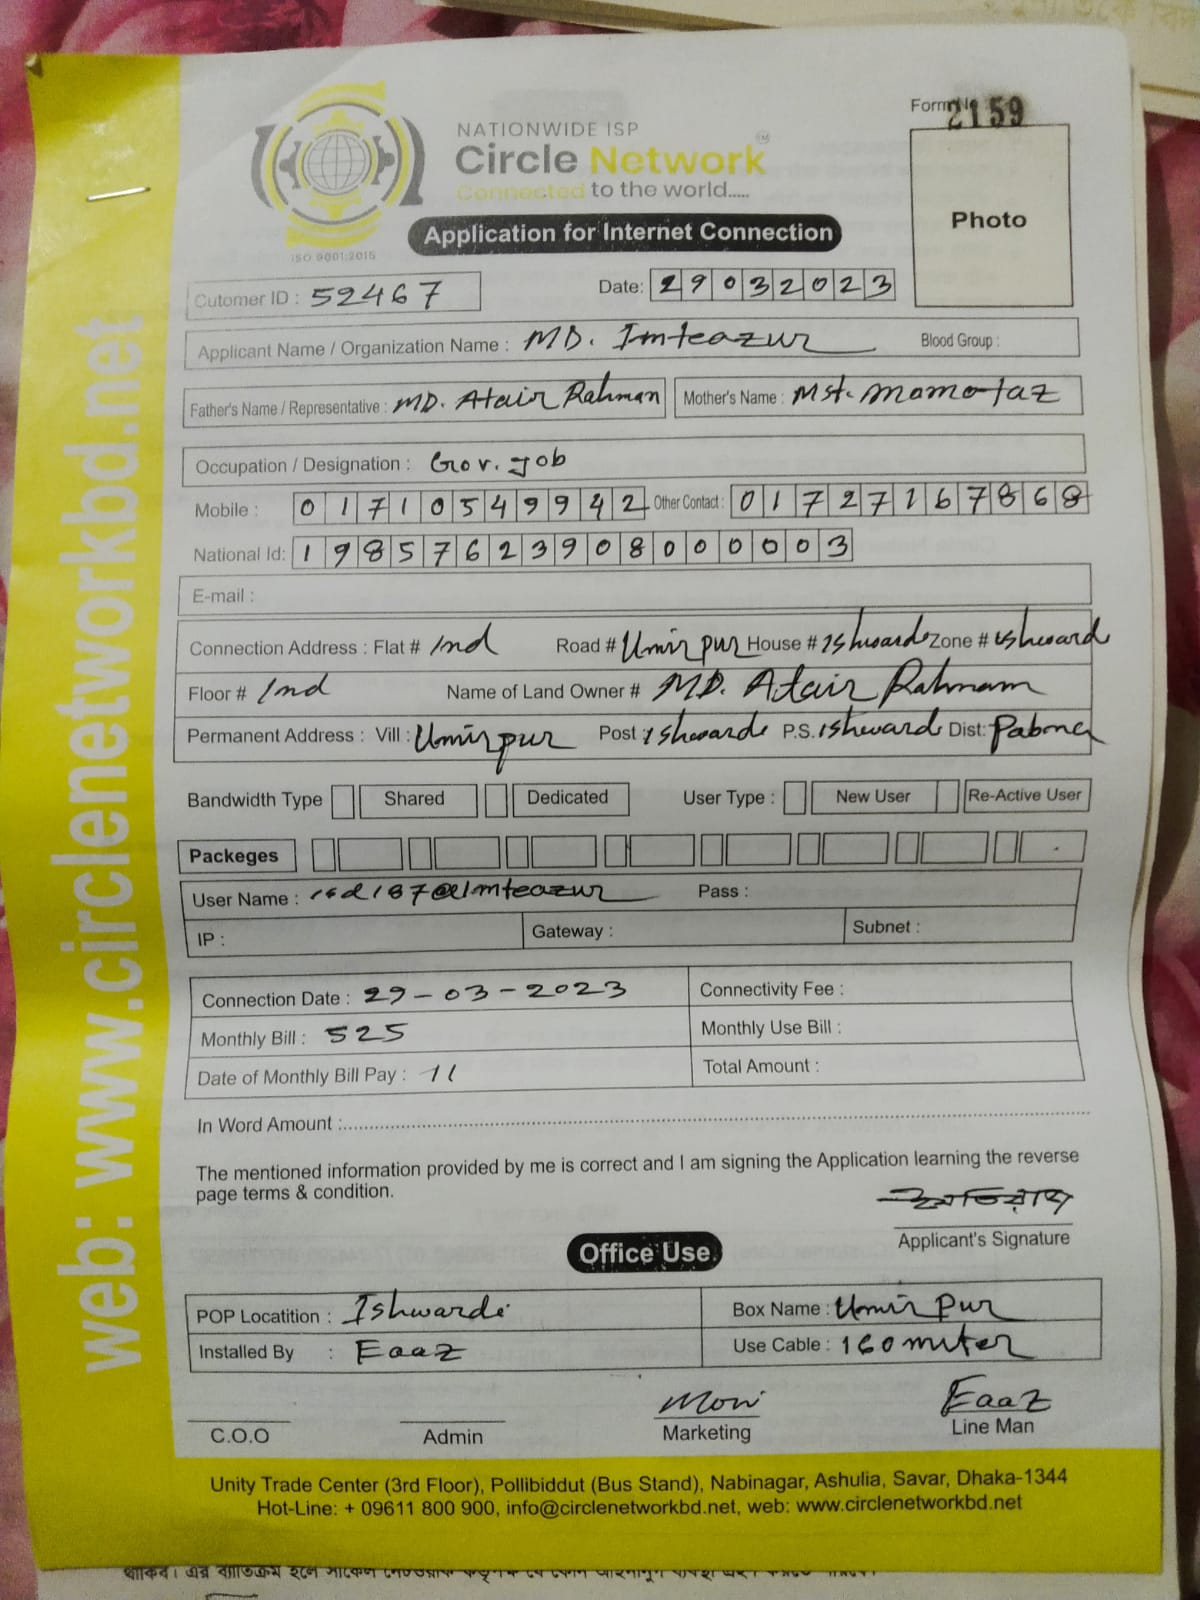 Form No 2159
NATIONWIDE ISP
Circle Network
Connected to the world.....
ISO 9001:2015
Application for Internet Connection
Photo
Cutomer ID : 52467 Date: 29032023
Applicant Name / Organization Name : MD. Imteazur Blood Group :
Father's Name / Representative : MD. Atair Rahman Mother's Name : Mst. Momotaz
Occupation / Designation : Gov. Job
Mobile : 01710549942 Other Contact : 01727167868
National Id: 19857623908000003
E-mail :
Connection Address : Flat # 1nd Road # Umirpur House # Ishwarde Zone # Ishward
Floor # 1nd Name of Land Owner # MD. Atair Rahmam
Permanent Address : Vill : Umirpur Post Ishwarde P.S. Ishward Dist: Pabna
Bandwidth Type Shared Dedicated User Type : New User Re-Active User
Packeges
User Name : isd187@Imteazur Pass :
IP : Gateway : Subnet :
Connection Date : 29-03-2023 Connectivity Fee :
Monthly Bill : 525 Monthly Use Bill :
Date of Monthly Bill Pay : 11 Total Amount :
In Word Amount :
The mentioned information provided by me is correct and I am signing the Application learning the reverse
page terms & condition.
Applicant's Signature
Office Use
POP Locatition : Ishwarde Box Name : Umirpur
Installed By : Eaaz Use Cable : 160 miter
Moni Eaaz
C.O.O Admin Marketing Line Man
Unity Trade Center (3rd Floor), Pollibiddut (Bus Stand), Nabinagar, Ashulia, Savar, Dhaka-1344
Hot-Line: + 09611 800 900, info@circlenetworkbd.net, web: www.circlenetworkbd.net
web: www.circlenetworkbd.net